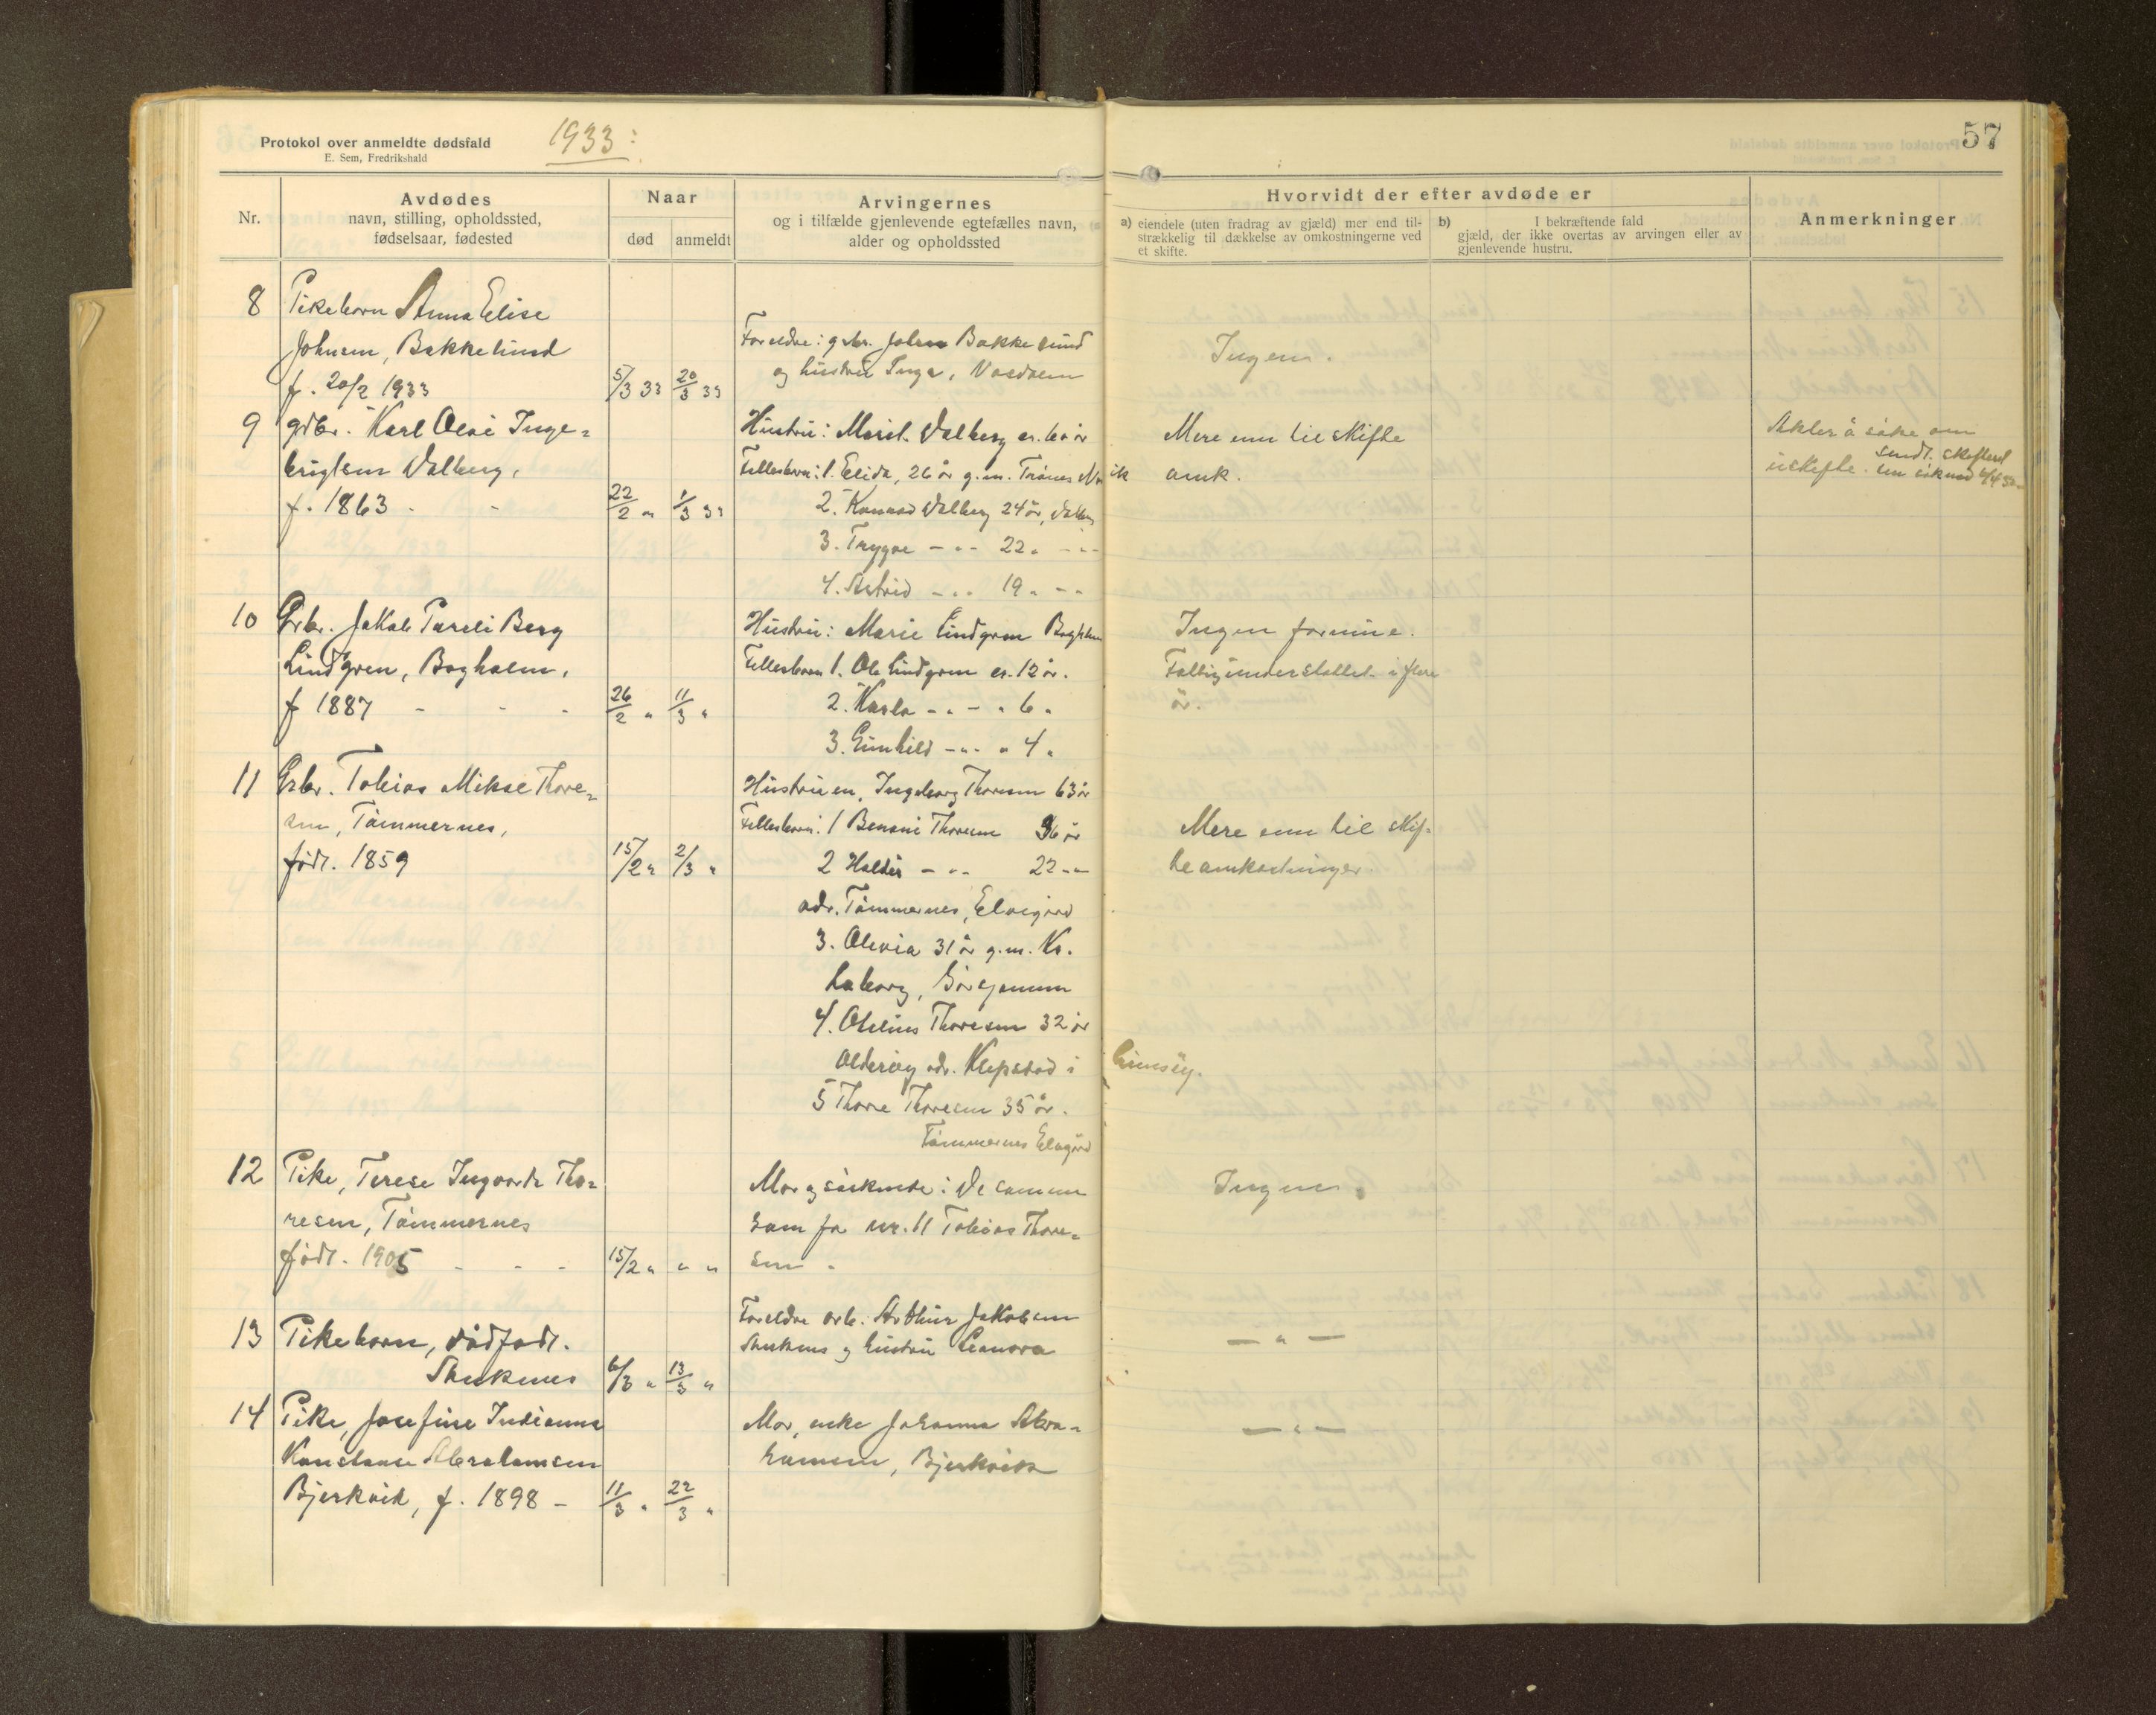 Protokol over anmeldte dødsfald
E. Sem, Fredrikshald
1933:
57
Nr.
Avdødes
navn, stilling, opholdssted,
fødselsaar, fødested
Naar
død
anmeldt
Arvingernes
og i tilfælde gjenlevende egtefælles navn,
alder og opholdssted
Hvorvidt der efter avdøde er
a) eiendele (uten fradrag av gjæld) mer end til-
strækkelig til dækkelse av omkostningerne ved
et skifte.
b) I bekræftende fald
gjæld, der ikke overtas av arvingen eller av
gjenlevende hustru.
Anmerkninger
8 Pikebarn Anna Elise
Johnsen, Bakkelund
f. 20/2 1933 5/3 33 20/3 33
Foreldre: gbr. Johan Bakkelund
og hustru Inga, Vasdalen
Ingen.
9 gdbr. Karl Olai Inge=
brigtsen Valberg,
f. 1863 - - 22/2 " 1/3 33
Hustru: Marit Valberg er. 60 år
Fellesbarn: 1. Elida, 26 år g.m. Tränes Narvik
2. Konrad Valberg 24 år, Valberg
3. Trygve - " - 22 " - " -
4. Astrid - " - 19 " - " -
Mere enn til skifte
omk.
Akter å søke om
uskifte. sendt. skjøtesl
10 Grbr. Jakob Pareli Berg
Lindgren, Bogholm,
f 1887 - - - 26/2 " 11/3 "
Hustru: Marie Lindgren Bogholm
Fellesbarn 1. Ole Lindgren er. 12 år.
2. Karla - " - " 6 "
3. Gunhild - " - " 4 "
Ingen formue.
Fattigunderstøttet i flere
år.
11 Grbr. Tobias Mikal Thore=
sen, Tømmernes,
født. 1859 15/2 " 2/3 "
Hustruen, Ingeborg Thoresen 63 år
Fellesbarn: 1 Benoni Thoresen 36 år
2 Haldis - " - 22 - " -
adr. Tømmernes, Elvegård
3. Olevia 31 år g.m. Kr.
Laborg, Sørgammen
4. Otelius Thoresen 32 år
Olderøy adr. Klepstad i Gimsøy.
5 Thore Thoresen 35 år.
Tømmernes Elvegård
Mere enn til skif-
teomkostninger
12 Pike, Terese Ingvarda Tho=
resen, Tømmernes
født. 1905 - - - 15/2 " " "
Mor og søskende: De samme
som for nr. 11 Tobias Thore=
sen.
Ingen.
13 Pikebarn, dødfødt.
Skuknes 6/3 " 13/3 "
Foreldre arb. Arthur Jakobsen
Skuknes og hustru Leonora
- " -
14 Pike, Josefine Indianna
Konstanse Abrahamsen
Bjerkvik, f. 1898 - 11/3 " 22/3 "
Mor, enke Johanna Abra=
hamsen, Bjerkvik
- " -